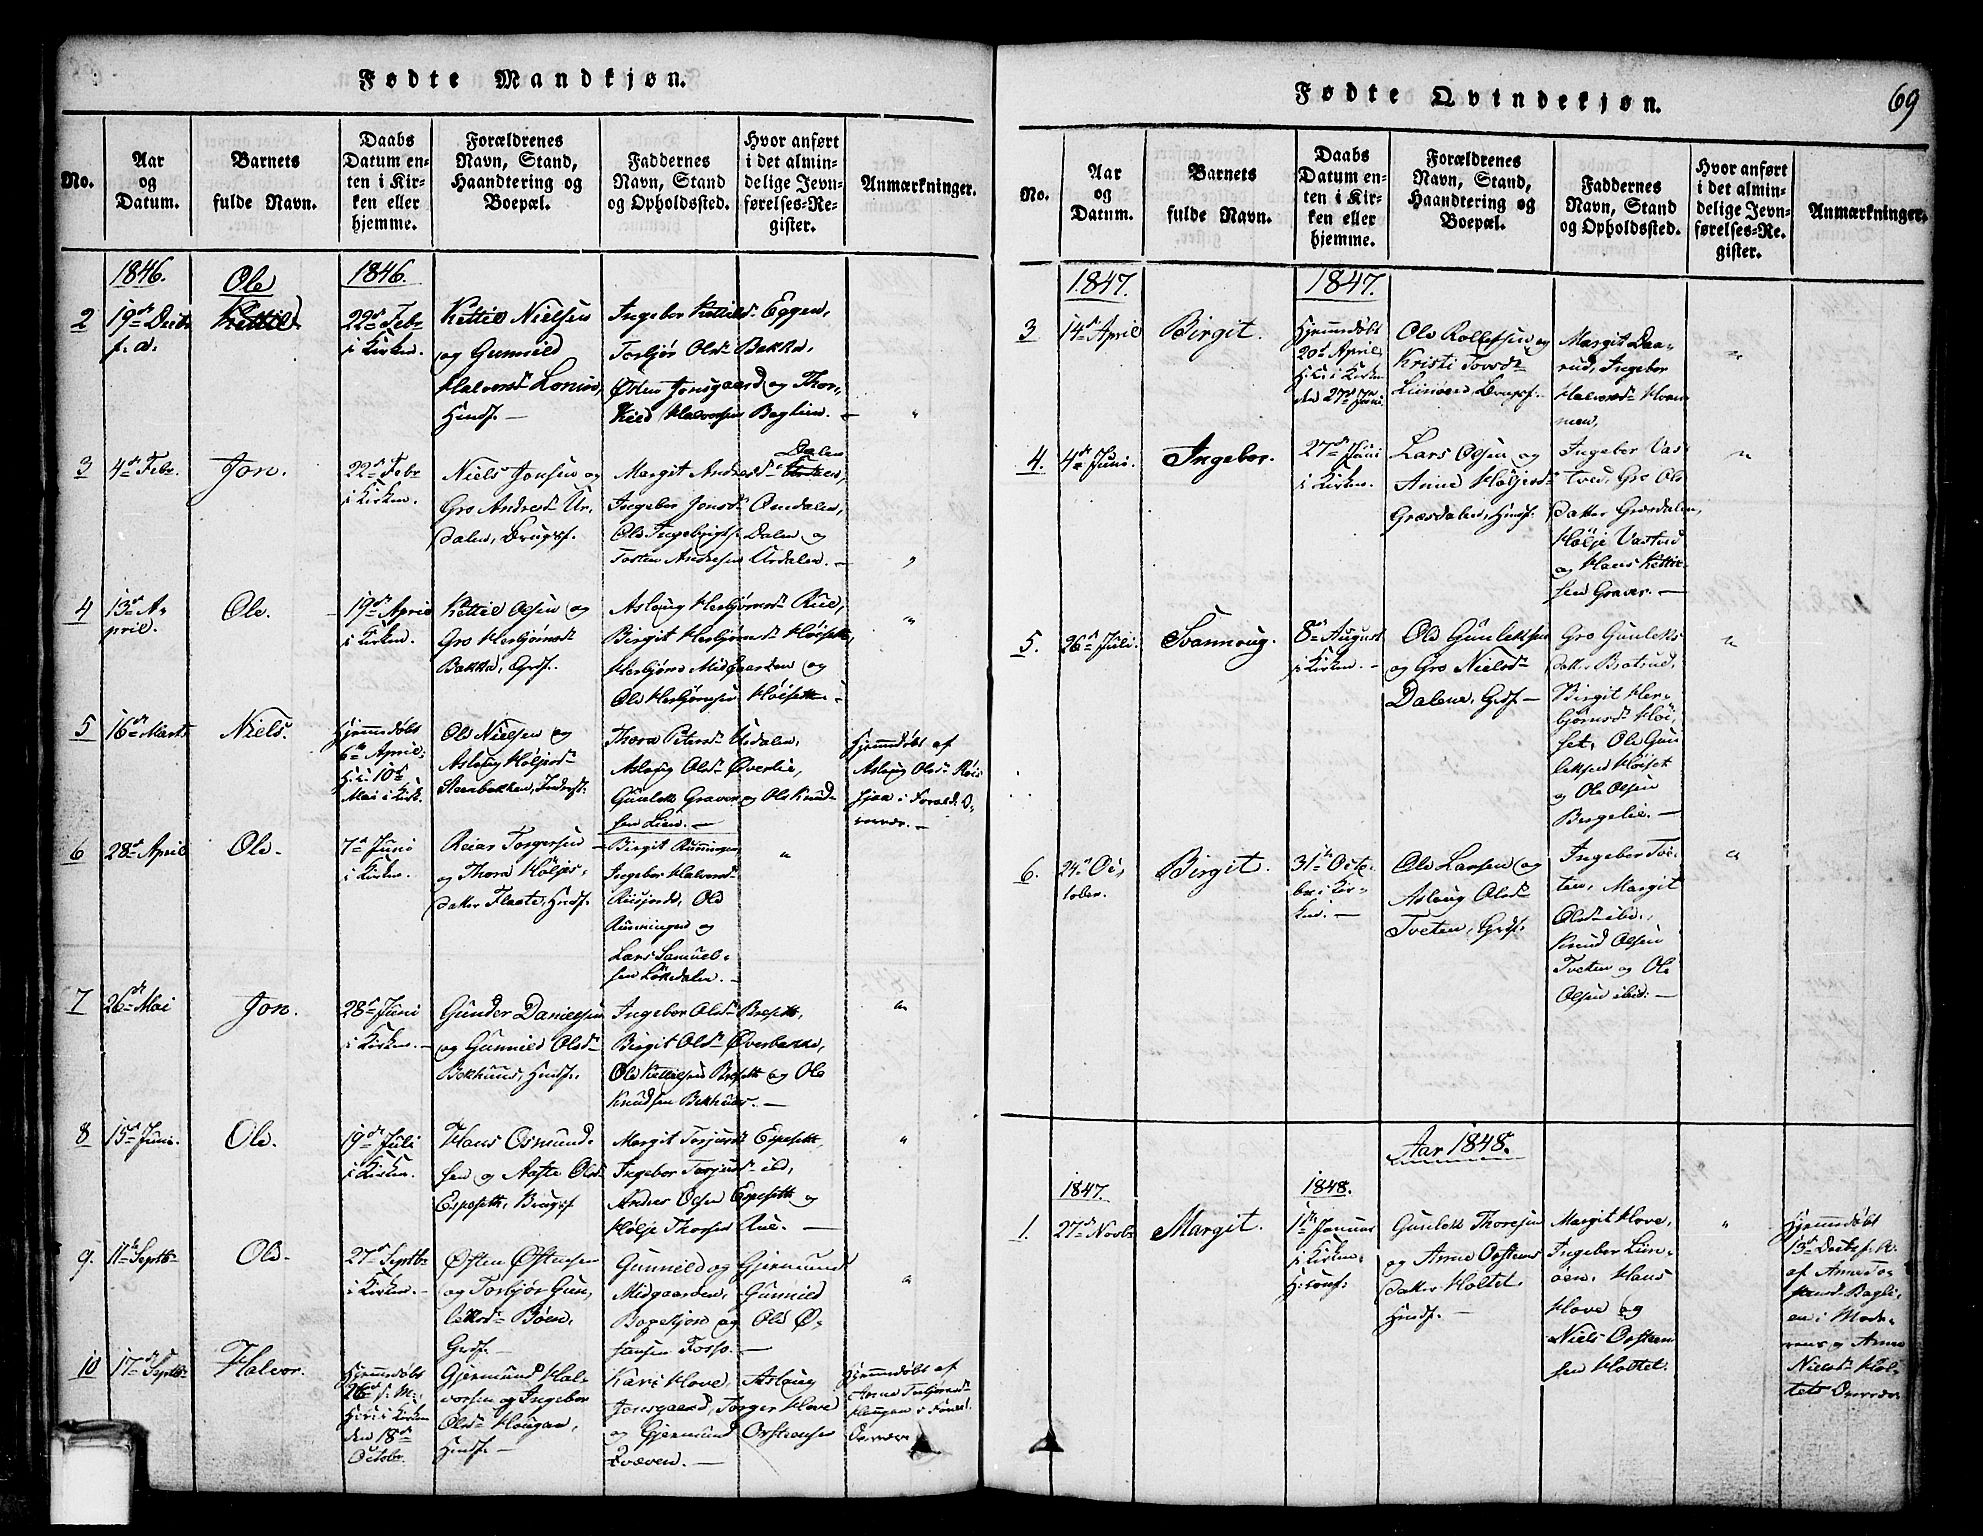 Fødte Mandkjøn.
No.
Aar
og
Datum.
Barnets
fulde Navn.
Daabs
Datum en-
ten i Kir-
ken eller
hjemme.
Forældrenes
Navn, Stand,
Haandtering og
Boepæl.
Faddernes
Navn, Stand
og Opholdssted.
Hvor anført
i det almin-
delige Jevn-
førelses-Re-
gister.
Anmærkninger.
1846.
1846.
2
19de Decbr
f. a.
Ole
Kettil.
22de Febr
i Kirken.
Kettil Nielsen
og Gunnild
Halvorsdr
Huusf. —
Ingebor Kettilsdr Eggen,
Torbjør Olsdr Bakka,
Østen Jonsgaard og Thor,
Kild Halvorsen Baglien. —
"
3
4de Febr.
Jon.
22de Febr
i Kirken.
Niels Jonsen og
Gro Andresdr Ur,
dalen, Brugsf.
Margit Andresdr Dalen,
Ingebor Jonsdr Omdalen,
Ole Ingebrigts. Dalen og
Torsten Andresen Urdalen. —
"
4
13de A,
pril.
Ole.
19de April
i Kirken.
Kettil Olsen og
Gro Herbjørnsdr
Bakka, Grdf.
Aslaug Herbjørnsdr Rue,
Birgit Herbjørnsdr Høisett,
Herbjørn Midgaarden og
Ole Herbjørnsen Høisett. —
"
5
16de Marts
Niels.
Hjemmedøbt
6te April,
H. i. 10de
Mai i Kirk.
Ole Nielsen og
Aslaug Høljesdr
Steenbakken, Inderst.
Thora Petersdr Urdalen,
Aslaug Olsdr Øverlie,
Gunlek Graver og Ole Knud-
sen Lien. —
Hjemmedøbt af
Aslaug Olsdr
i Foreld:
værær. —
6
28de April
Ole.
7de Juni
i Kirken.
Reiar Torgersen
og Thora Høljes-
datter Flaate, Huusf.
Birgit Rumningen
Ingebor Halvorsdr
Ole
Rumningen og
Lars Samuel-
sen Løkedalen. —
"
7
26de Mai
Jon.
28de Juni
i Kirken. —
Gunder Danielsen
og Gunnild Olsdr
Bekhuus, Huusf.
Ingebor Olsdr Bresett,
Birgit Olsdr Øverbakka,
Ole Kettilsen Bresett og Ole
Knudsen Bekhuus. —
"
8
15de Juni.
Ole.
19de Juli
i Kirken.
Hans Osmund-
sen og Aaste Olsdr
Espesett, Brugsf
Margit Torjusdr Espesett,
Ingebor Torjusdr ibd,
Andres Olsen Espesett og
Hølje Thorsen Rue. —
"
9.
11te Septbr
Ole.
27de Septbr
i Kirken. —
Østen Østensen
og Torbjør Gun,
leksdr Bøen,
Grdf. —
Gunnild og Gjermund
Midgaarden, Gunnild
Bopeljon og Ole Ø,
stensen Torso. —
"
10
17de Septbr
Halvor.
Hjemmedøbt
26de s. M.
H. i. i Kirken
den 18de
Octobr.
Gjermund Hal-
vorsen og Ingebor
Olsdr Hougan,
Huusf. —
Kari Hove, Aslaug
Jonsgaard, Torger Hove
og Gjermund Orstensen
Kvæven. —
Hjemmedøbt af
Anne Torbjørnsdr
Haugan i
Fødte Qvindekjøn.
69
No.
Aar
og
Datum.
Barnets
fulde Navn.
Daabs
Datum en-
ten i Kir-
ken eller
hjemme.
Forældrenes
Navn, Stand,
Haandtering og
Boepæl.
Faddernes
Navn, Stand
og Opholdssted.
Hvor anført
i det almin-
delige Jevn-
førelses-Re-
gister.
Anmærkninger.
1847.
1847.
3
14de April
Birgit.
Hjemmedøbt
20de April,
H. i. i Kirken
den 27de Juni.
Ole Rollefsen og
Kristi Tovsdr
Brugsf. —
Margit Daa-
rud, Ingebor
Halvorsdr
"
4.
4de Juni.
Ingebor.
27de Juni
i Kirken.
Lars Olsen og
Anne Høljesdr
Græsdalen, Huusf.
Ingebor Vas-
tved, Gro Ols
datter Græsdalen,
Hølje Vastved
og Hans Kettil-
sen Graver. —
"
5.
26de Juli.
Svannoug.
8de August
i Kirken. —
Ole Gunleksen
og Gro Nielsdr
Dalene, Grdf. —
Gro Gunleks
datter Bratrud,
Birgit Her-
bjørnsdr Høi,
set, Ole Gun
leksen Høiset
og Ole Olsen
Bergelie. —
"
6.
24de Oc,
tober.
Birgit.
31te Octo-
ber i Kir-
ken. —
Ole Larsen og
Aslaug Olsdr
Tveten, Grdf.
Ingebor Tve-
ten, Margit
Olsdr ibd.,
Knud Olsen
Tveten og Ole
Olsen ibid: —
"
Aar 1848.
1847.
1848.
1.
27de Novbr
Margit.
1ste Januar
i Kirken.
Gunlek Thoresen
og Anne Orstens
datter Holtet.
Huusf. —
Margit Hove,
Ingebor Lün-
øen, Hans
Hove og
Niels Orsten
sen Holtet.
"
Hjemmedøbt
13de Decbr f. A.
af Anne To-
Bagli-
en i Mode-
rens og Anne
Nielsdr Hol-
tets Overvær.